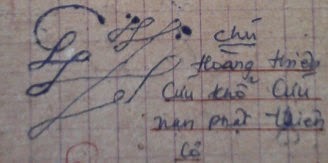 chú
Hoàng thiên
Cứu khổ Cứu
nạn phật thiên
cô